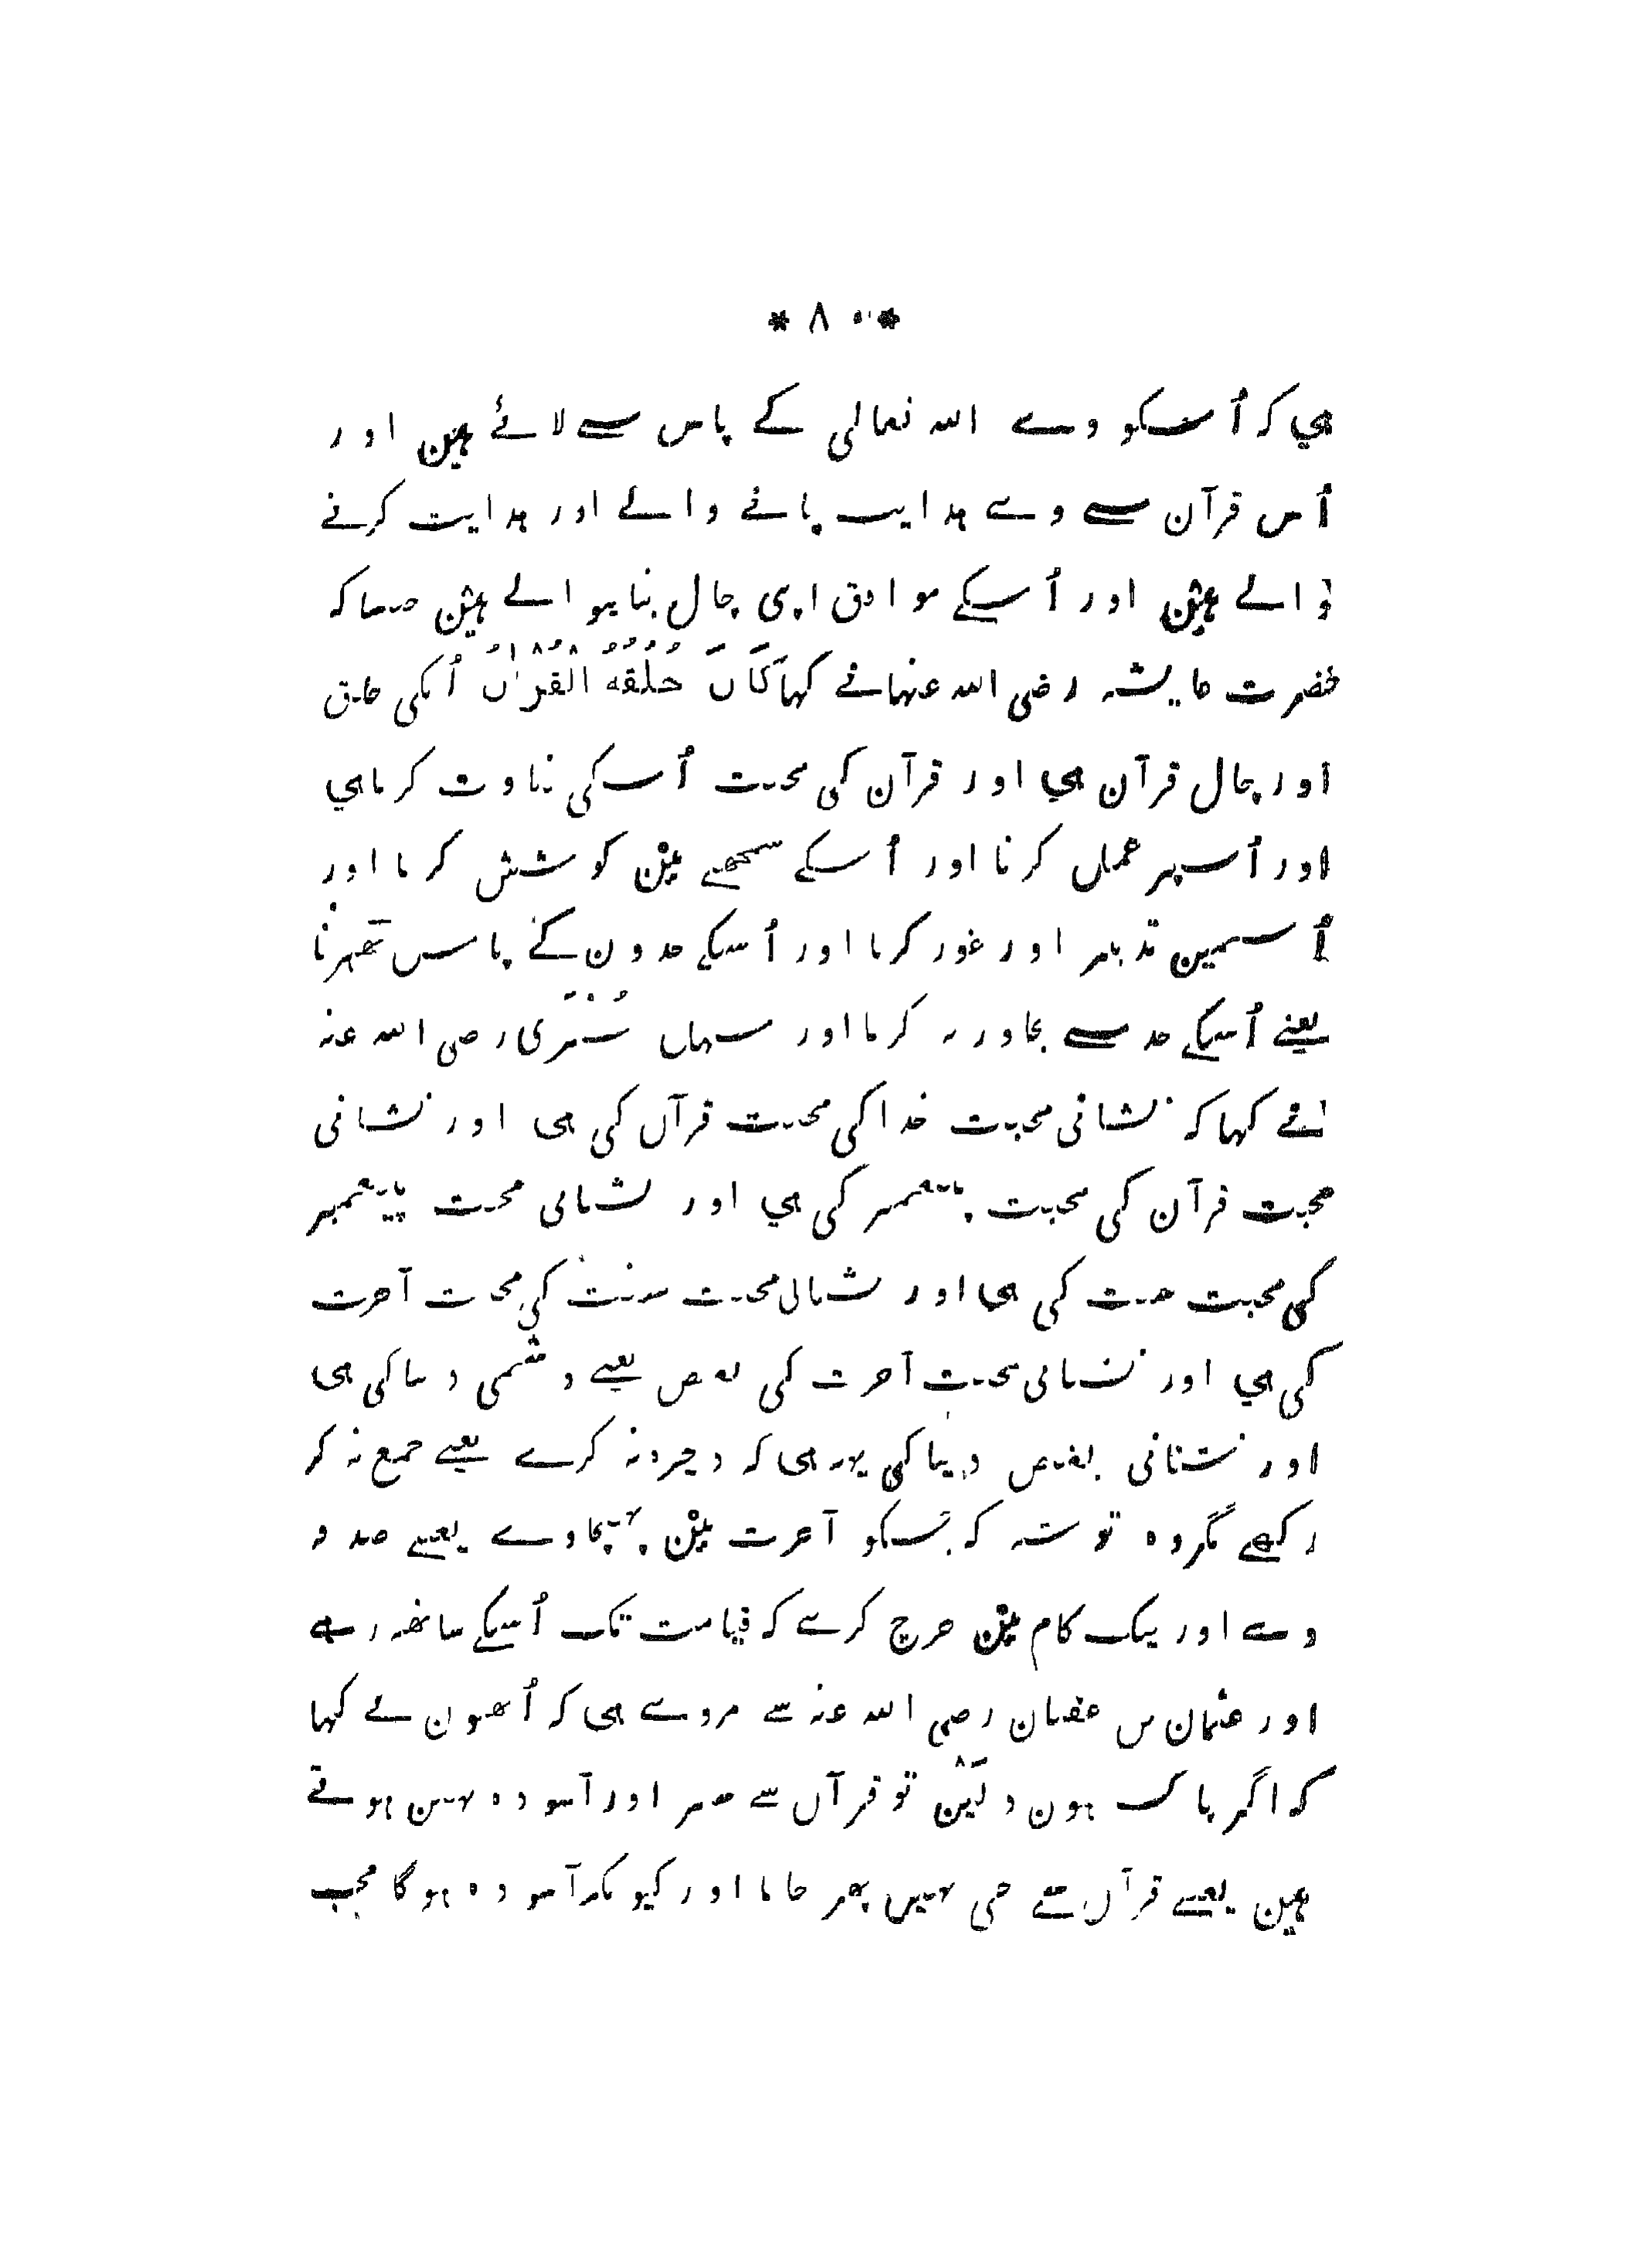 * ۸ *
هي کہ اُسکو وے اللہ تعالی کے پاس سے لائے هین اور
اُس قرآن سے وے ہدایت پانے والے اور ہدایت کرنے
والے هین اور اُسکے موافق اپنی چال بنایوالے هین جیسا کہ
حضرت عایشہ رضی اللہ عنہا نے کہا کَانَ خُلُقُهُ الْقُرْاٰنُ اُنکی خلق
اور چال قرآن هي اور قرآن کی محبت اُسکی تلاوت کرنا هي
اور اُسپر عمل کرنا اور اُسکے سمجھنے مین کوشش کرنا اور
اُسمین تدبر اور غور کرنا اور اُسکے حدون کے پاس تھہرنا
یعنے اُسکے حد سے تجاوز نہ کرنا اور سہل تُسْتَری رضی اللہ عنہ
نے کہا کہ نشانی محبت خدا کی محبت قرآن کی هی اور نشانی
محبت قرآن کی محبت پیغمبر کی هي اور نشانی محبت پیغمبر
کی محبت سنت کی هی اور نشانی محبت سنت کی محبت آخرت
کی هي اور نشانی محبت آخرت کی بغض یعنے دشمنی دنیا کی هی
اور نشانی بغض دنیا کی یہہ هی کہ ذخیرہ نہ کرے یعنے جمع نہ کر
رکھے مگر وہ توشہ کہ جسکو آخرت مین پہنچاوے یعنے صدقہ
دے اور نیک کام مین خرچ کرے کہ قیامت تک اُسکے ساتھہ رہے
اور عثمان بن عفان رضی اللہ عنہ سے مروے هی کہ اُنھون نے کہا
کہ اگر پاک ہون دلین تو قرآن سے سیر اور آسودہ نہین ہوتے
هین یعنے قرآن سے جی نہین بھر جاتا اور کیونکر آسودہ ہوگا محب